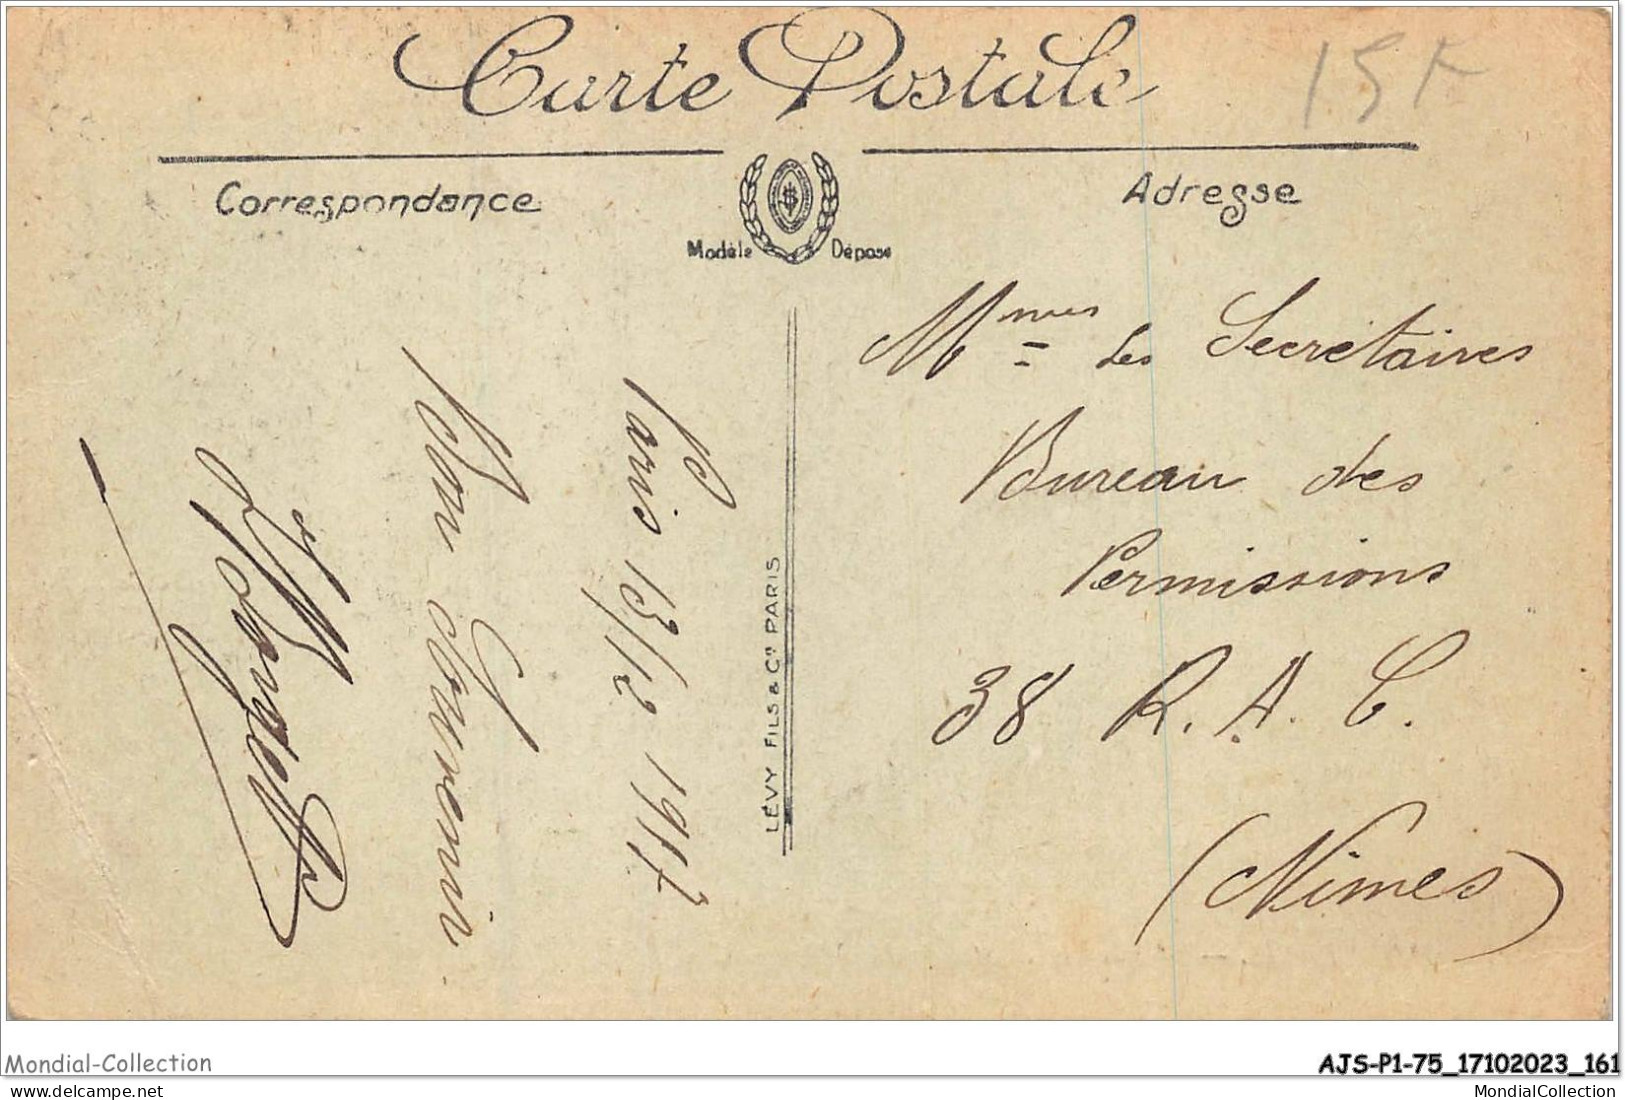 Carte Postale
15F
Correspondance
Adresse
Modèle Déposé
Paris 13/12 1917
Bon Souvenir
LÉVY FILS & Cie PARIS
Mmes les Secrétaires
Bureau des
Permissions
38 R. A. C.
(Nimes)
Mondial-Collection
AJS-P1-75_17102023_161
MondialCollection